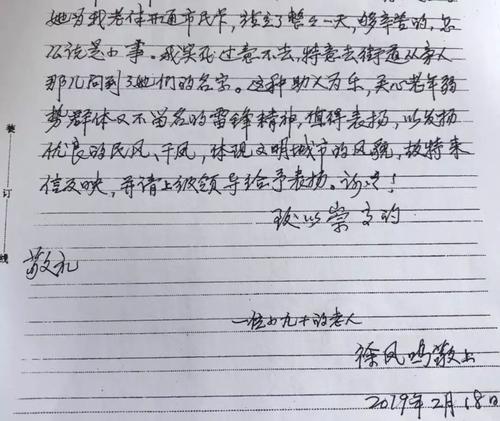 她为我老伴开通市民卡,接空了整々一天,够辛苦的,怎
么说是小事。我实在过意不去,特意去街道从家人
那儿问到了她们的名字。这种助人为乐,关心老年弱
势群体又不留名的雷锋精神,值得表扬,以发扬
优良的民风,干风,体现文明城市的风貌,故特来
信反映,并请上级领导给予表扬。谢谢!
致以崇高的
敬礼
一位九十的老人
徐凤鸣敬上
2019年2月18日
装
订
线